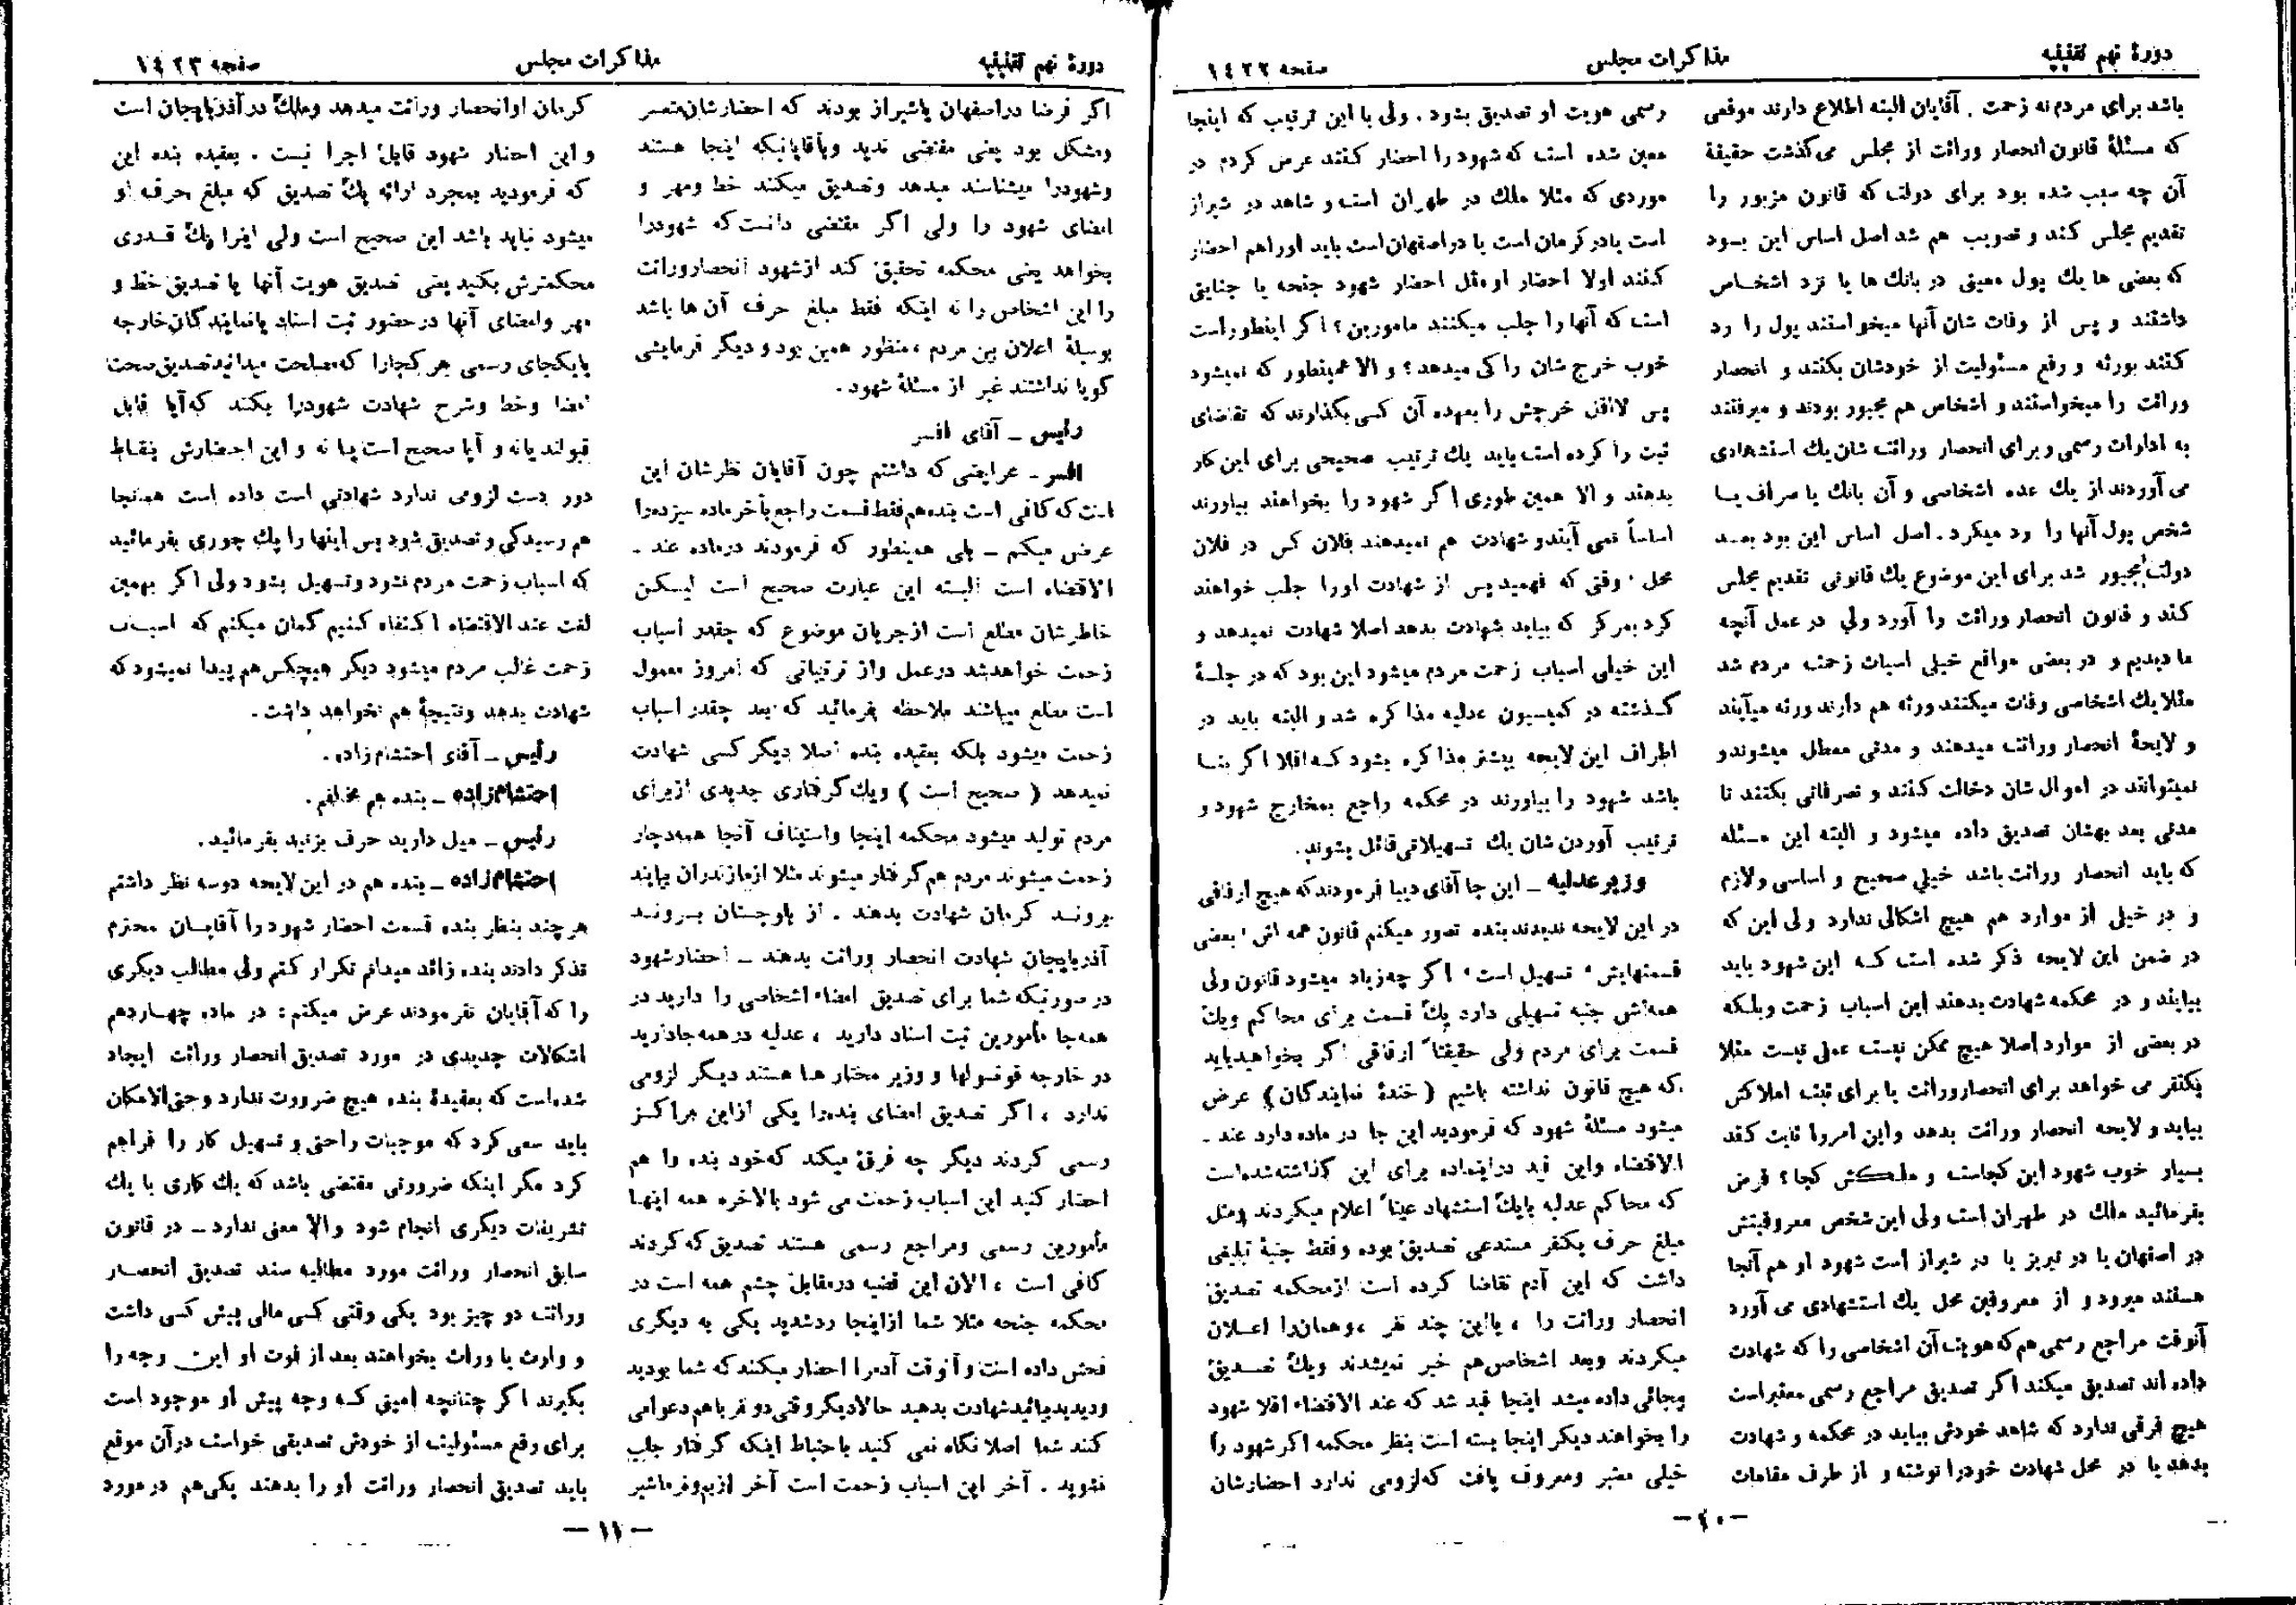 دورهٔ نهم تقنینیه
مذاکرات مجلس
صفحه ۱۴۲۲
باشد برای مردم نه زحمت . آقایان البته اطلاع دارند موقعی
که مسئلهٔ قانون انحصار وراثت از مجلس می گذشت حقیقة
آن چه سبب شده بود برای دولت که قانون مزبور را
تقدیم مجلس کند و تصویب هم شد اصل اساس این بود
که بعضی ها یك پول معینی در بانك ها یا نزد اشخاص
داشتند و پس از وفات شان آنها میخواستند پول را رد
کنند بورثه و رفع مسئولیت از خودشان بکنند و انحصار
وراثت را میخواستند و اشخاص هم مجبور بودند و میرفتند
به ادارات رسمی و برای انحصار وراثت شان یك استشهادی
می آوردند از یك عده اشخاصی و آن بانك یا صراف یا
شخص پول آنها را رد میکرد . اصل اساس این بود بعد
دولت مجبور شد برای این موضوع یك قانونی تقدیم مجلس
کند و قانون انحصار وراثت را آورد ولی در عمل آنچه
ما دیدیم و در بعضی مواقع خیلی اسباب زحمت مردم شد
مثلا یك اشخاصی وفات میکنند ورثه هم دارند ورثه میآیند
و لایحهٔ انحصار وراثت میدهند و مدتی معطل میشوند و
نمیتوانند در اموال شان دخالت کنند و تصرفاتی بکنند تا
مدتی بعد بهشان تصدیق داده میشود و البته این مسئله
که باید انحصار وراثت باشد خیلی صحیح و اساسی و لازم
و در خیلی از موارد هم هیچ اشکالی ندارد ولی این که
در ضمن این لایحه ذکر شده است که این شهود باید
بیایند و در محکمه شهادت بدهند این اسباب زحمت و بلکه
در بعضی از موارد اصلا هیچ ممکن نیست عملی نیست مثلا
یکنفر می خواهد برای انحصار وراثت یا برای ثبت املاکش
بیاید و لایحه انحصار وراثت بدهد و این امر را ثابت کند
بسیار خوب شهود این کجاست و ملکش کجا ؟ فرض
بفرمائید ملك در طهران است ولی این شخص معروفیتش
در اصفهان یا در تبریز یا در شیراز است شهود او هم آنجا
هستند میرود و از معروفین محل یك استشهادی می آورد
آنوقت مراجع رسمی هم که هویت آن اشخاصی را که شهادت
داده اند تصدیق میکند اگر تصدیق مراجع رسمی معتبر است
هیچ فرقی ندارد که شاهد خودش بیاید در محکمه و شهادت
بدهد یا در محل شهادت خودرا نوشته و از طرف مقامات
رسمی هویت او تصدیق بشود . ولی با این ترتیب که اینجا
معین شده است که شهود را احضار کنند عرض کردم در
موردی که مثلا ملك در طهران است و شاهد در شیراز
است یا در کرمان است یا در اصفهان است باید او را هم احضار
کنند اولا احضار او مثل احضار شهود جنحه یا جنایتی
است که آنها را جلب میکنند مامورین ؟ اگر اینطور است
خوب خرج شان را کی میدهد ؟ و الا همینطور که نمیشود
پس لااقل خرجش را بعهده آن کسی بگذارند که تقاضای
ثبت را کرده است باید یك ترتیب صحیحی برای این کار
بدهند و الا همین طوری اگر شهود را بخواهند بیاورند
اساساً نمی آیند و شهادت هم نمیدهند فلان کس در فلان
محل ، وقتی که فهمید پس از شهادت او را جلب خواهند
کرد بمرکز که بیاید شهادت بدهد اصلا شهادت نمیدهد و
این خیلی اسباب زحمت مردم میشود این بود که در جلسهٔ
گذشته در کمیسیون عدلیه مذاکره شد و البته باید در
اطراف این لایحه بیشتر مذاکره بشود که اقلا اگر بنا
باشد شهود را بیاورند در محکمه راجع بمخارج شهود و
ترتیب آوردن شان یك تسهیلاتی قائل بشوند .
وزیر عدلیه ـ این جا آقای دیبا فرمودند که هیچ ارفاقی
در این لایحه ندیدند بنده تصور میکنم قانون همه اش ، بعضی
قسمتهایش ، تسهیل است ، اگر چه زیاد میشود قانون ولی
همه اش جنبه تسهیلی دارد یك قسمت برای محاکم ویك
قسمت برای مردم ولی حقیقتاً ارفاقی اگر بخواهید باید
که هیچ قانون نداشته باشیم ( خندهٔ نمایندگان ) عرض
میشود مسئلهٔ شهود که فرمودید این جا در ماده دارد عند ـ
الاقتضاء و این قید در اینماده برای این گذاشته شده است
که محاکم عدلیه با یك استشهاد عیناً اعلام میکردند و مثل
مبلغ حرف یکنفر مستدعی تصدیق بوده و فقط جنبهٔ تبلیغی
داشت که این آدم تقاضا کرده است از محکمه تصدیق
انحصار وراثت را ، با این چند نفر ، و همان را اعلان
میکردند و بعد اشخاص هم خبر نمیشدند ویك تصدیق
مجانی داده میشد اینجا قید شد که عند الاقتضاء اقلا شهود
را بخواهند دیگر اینجا بسته است بنظر محکمه اگر شهود را
خیلی معتبر و معروف یافت که لزومی ندارد احضارشان
ـ ۱۰ ـ
دورهٔ نهم تقنینیه
مذاکرات مجلس
صفحه ۱۴۲۳
اگر فرضا در اصفهان یا شیراز بودند که احضارشان متعسر
ومشکل بود یعنی مقتضی ندید وبآقایانیکه اینجا هستند
وشهودرا میشناسند میدهد وتصدیق میکنند خط ومهر و
امضای شهود را ولی اگر مقتضی دانست که شهودرا
بخواهد یعنی محکمه تحقیق کند از شهود انحصار وراثت
را این اشخاص را نه اینکه فقط مبلغ حرف آن ها باشد
بوسیلهٔ اعلان بین مردم ، منظور همین بود و دیگر فرمایشی
گویا نداشتند غیر از مسئلهٔ شهود .
رئیس ـ آقای افسر
افسر ـ عرایضی که داشتم چون آقایان نظرشان این
است که کافی است بنده هم فقط قسمت راجع بآخر ماده سیزده را
عرض میکنم ـ بلی همینطور که فرمودند در ماده عند ـ
الاقتضاء است البته این عبارت صحیح است لیکن
خاطرشان مطلع است از جریان موضوع که چقدر اسباب
زحمت خواهد شد در عمل واز ترتیباتی که امروز معمول
است مطلع میباشند ملاحظه بفرمائید که بعد چقدر اسباب
زحمت میشود بلکه بعقیده بنده اصلا دیگر کسی شهادت
نمیدهد ( صحیح است ) ویك گرفتاری جدیدی از برای
مردم تولید میشود محکمه اینجا واستیناف آنجا همه دچار
زحمت میشوند مردم هم گرفتار میشوند مثلا از مازندران بیایند
بروند کرمان شهادت بدهند . از بلوچستان بروند
آذربایجان شهادت انحصار وراثت بدهند ـ احضار شهود
در صورتیکه شما برای تصدیق امضاء اشخاصی را دارید در
همه جا مأمورین ثبت اسناد دارید ، عدلیه در همه جا دارید
در خارجه قونسولها و وزیر مختار ها هستند دیگر لزومی
ندارد ، اگر تصدیق امضای بنده را یکی از این مراکز
رسمی کردند دیگر چه فرق میکند که خود بنده را هم
احضار کنید این اسباب زحمت می شود بالاخره همه اینها
مأمورین رسمی ومراجع رسمی هستند تصدیق که کردند
کافی است ، الان این قضیه در مقابل چشم همه است در
محکمه جنحه مثلا شما از اینجا رد شدید یکی به دیگری
فحش داده است و آنوقت آدم را احضار میکنند که شما بودید
ودیدید بیائید شهادت بدهید حالا دیگر وقتی دو نفر باهم دعوا می
کنند شما اصلا نگاه نمی کنید باحتیاط اینکه گرفتار جلب
نشوید . آخر این اسباب زحمت است آخر از بم و نرماشیر
کرمان او انحصار وراثت میدهد وملك در آذربایجان است
و این احضار شهود قابل اجرا نیست . بعقیده بنده این
که فرمودید بمجرد ارائه یك تصدیق که مبلغ حرف او
میشود نباید باشد این صحیح است ولی اینرا یك قدری
محکمترش بکنید یعنی تصدیق هویت آنها یا تصدیق خط و
مهر وامضای آنها در حضور ثبت اسناد یا نمایندگان خارجه
یا یکجای رسمی هر کجارا که مصلحت میدانید تصدیق صحت
امضا وخط وشرح شهادت شهودرا بکند که آیا قابل
قبولند یا نه و آیا صحیح است یا نه و این احضارش بنقاط
دور دست لزومی ندارد شهادتی است داده است همانجا
هم رسیدگی و تصدیق شود پس اینها را یك جوری بفرمائید
که اسباب زحمت مردم نشود وتسهیل بشود ولی اگر بهمین
لغت عند الاقتضاء اکتفاء کنیم گمان میکنم که اسباب
زحمت غالب مردم میشود دیگر هیچکس هم پیدا نمیشود که
شهادت بدهد ونتیجهٔ هم نخواهد داشت .
رئیس ـ آقای احتشام زاده .
احتشام زاده ـ بنده هم مخالفم .
رئیس ـ میل دارید حرف بزنید بفرمائید .
احتشام زاده ـ بنده هم در این لایحه دوسه نظر داشتم
هرچند بنظر بنده قسمت احضار شهود را آقایان محترم
تذکر دادند بنده زائد میدانم تکرار کنم ولی مطالب دیگری
را که آقایان نفرمودند عرض میکنم : در ماده چهاردهم
اشکالات جدیدی در مورد تصدیق انحصار وراثت ایجاد
شده است که بعقیدهٔ بنده هیچ ضرورت ندارد و حتی الامکان
باید سعی کرد که موجبات راحتی و تسهیل کار را فراهم
کرد مگر اینکه ضرورتی مقتضی باشد که یك کاری با یك
تشریفات دیگری انجام شود و الا معنی ندارد ـ در قانون
سابق انحصار وراثت مورد مطالبه سند تصدیق انحصار
وراثت دو چیز بود یکی وقتی کسی مالی پیش کسی داشت
و وارث یا وراث بخواهند بعد از فوت او این وجه را
بگیرند اگر چنانچه امینی که وجه پیش او موجود است
برای رفع مسئولیت از خودش تصدیقی خواست در آن موقع
باید تصدیق انحصار وراثت او را بدهند یکی هم در مورد
ـ ۱۱ ـ